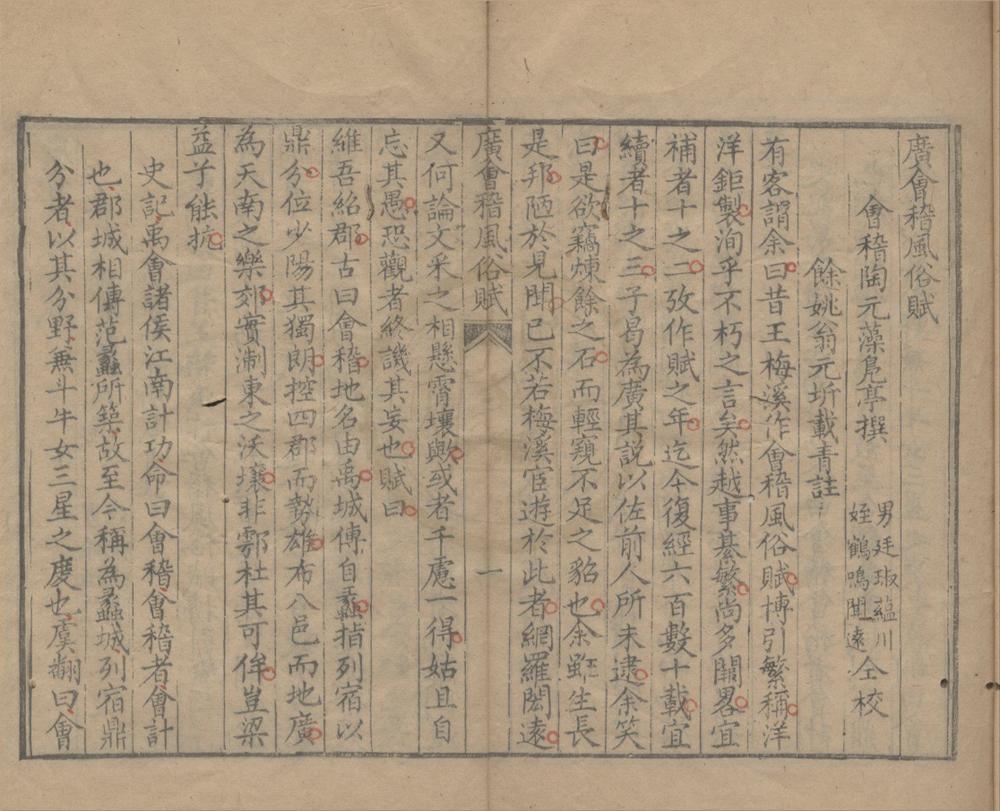 廣會稽風俗賦
會稽陶元藻鳧亭撰
男廷琡蘊川
姪鶴鳴聞遠
仝校
餘姚翁元圻載青註
有客謂余曰昔王梅溪作會稽風俗賦博引繁稱洋
洋鉅製洵乎不朽之言矣然越事綦繁尚多闕畧宜
補者十之二攷作賦之年迄今復經六百數十載宜
續者十之三子曷為廣其說以佐前人所未逮余笑
曰是欲竊煉餘之石而輕窺不足之貂也余雖生長
是邦陋於見聞已不若梅溪宦遊於此者網羅閎遠
廣會稽風俗賦
一
又何論文采之相懸霄壤歟或者千慮一得姑且自
忘其愚恐觀者終譏其妄也賦曰
維吾紹郡古曰會稽地名由禹城傳自蠡指列宿以
鼎分位少陽其獨朗控四郡而勢雄布八邑而地廣
為天南之樂郊實淛東之沃壤非鄠杜其可侔豈梁
益子能抗
史記禹會諸侯江南計功命曰會稽會稽者會計
也郡城相傳范蠡所築故至今稱為蠡城列宿鼎
分者以其分野無斗牛女三星之度也虞翻曰會